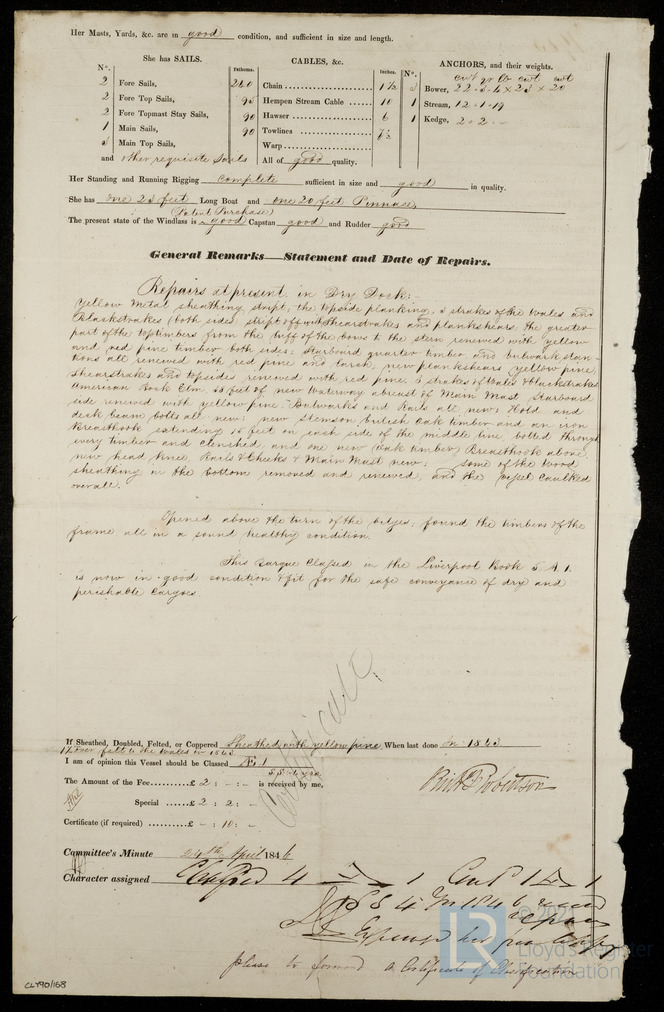 Her Masts, Yards, &c. are in good condition, and sufficient in size and length.
She has SAILS.
CABLES, &c.
ANCHORS, and their weights.
No.
Fathoms.
Inches.
No.
cwt qr lb cwt cwt
2 Fore Sails, 240 Chain 1 1/2 3 Bower, 22-3-4 x 23 x 20
2 Fore Top Sails, 95 Hempen Stream Cable 10 1 Stream, 12-1-19
2 Fore Topmast Stay Sails, 90 Hawser 6 1 Kedge, 2-2-
1 Main Sails, 90 Towlines 7 1/2
3 Main Top Sails, Warp
and other requisite Sails All of good quality.
Her Standing and Running Rigging complete sufficient in size and good in quality.
She has One 23 feet Long Boat and one 20 feet Pinnace
(Patent Purchase)
The present state of the Windlass is good Capstan good and Rudder good
General Remarks—Statement and Date of Repairs.
Repairs at present in Dry Dock:
Yellow Metal sheathing stript; the topside planking, 3 strakes of the Wales and
Blackstrakes (both sides) stript off with Shearstrakes and plankshears, the greater
part of the toptimbers from the buff of the bows to the stern renewed with yellow
and red pine timber both sides; Starboard quarter timber and bulwark stan-
tions all renewed with red pine and larch, new plankshears yellow pine,
Shearstrakes and topsides renewed with red pine; 3 strakes of Wales & Blackstrakes
American Rock Elm. 53 feet of new Waterway abreast of Main Mast Starboard
side renewed with yellow pine. Bulwarks and Rails all new: Hold and
deck beam bolts all new; new Stemson british Oak timber and an iron
Breasthook extending 15 feet on each side of the middle line bolted through
every timber and clenched, and one new (Oak timber) Breasthook above,
new head knee, Rails & Cheeks & Main Mast new; some of the wood
sheathing in the bottom removed and renewed, and the vessel caulked
overall.
Opened above the turn of the bilges; found the timbers of the
frame all in a sound healthy condition.
This Barque Classed in the Liverpool Book 5 A 1.
is now in good condition & fit for the safe conveyance of dry and
perishable Cargoes.
Certificate
If Sheathed, Doubled, Felted, or Coppered Sheathed with yellow pine When last done in 1843
over felt to the Wales in 1843
I am of opinion this Vessel should be Classed Æ 1
The Amount of the Fee £ 2 : - : - is received by me,
Special £ 2 : 2 : -
Certificate (if required) £ - : 10 : -
Robertson
Committee's Minute 24th April 1846
Character assigned 4 1 1
please to forward a Certificate of Classification
CLY90/168
© 2021
LR
Lloyd's Register
Foundation